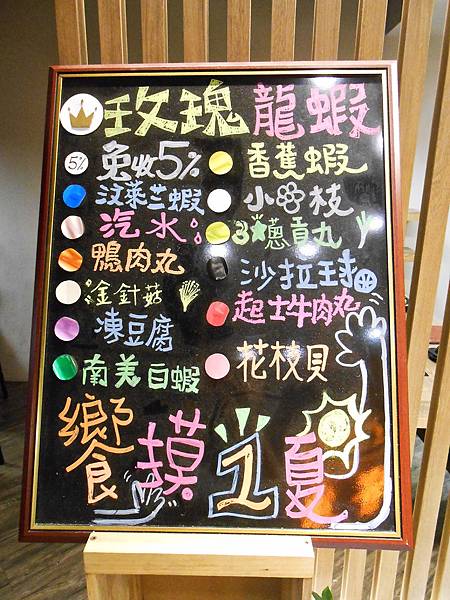 玫瑰龍蝦
5% 免收5%
汶萊兰蝦
汽水
鴨肉丸
金針菇
凍豆腐
南美白蝦
香蕉蝦
小花枝
3★蔥貢丸
沙拉球
起士牛肉丸
花枝貝
饗摸1夏